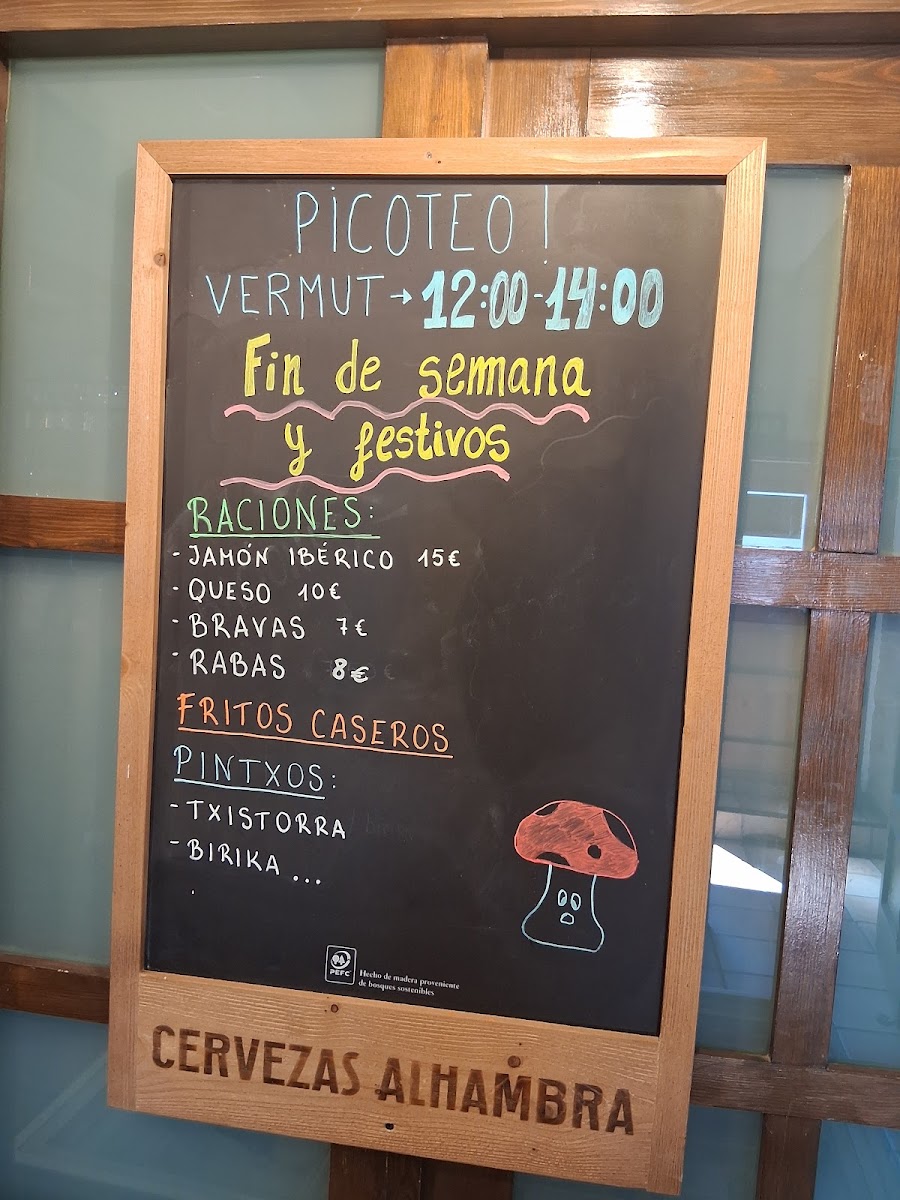 PICOTEO!
VERMUT → 12:00-14:00
Fin de semana
y festivos
RACIONES:
- JAMÓN IBÉRICO 15€
- QUESO 10€
- BRAVAS 7€
- RABAS 8€
FRITOS CASEROS
PINTXOS:
- TXISTORRA
- BIRIKA ...
PEFC
Hecho de madera proveniente
de bosques sostenibles
CERVEZAS ALHAMBRA